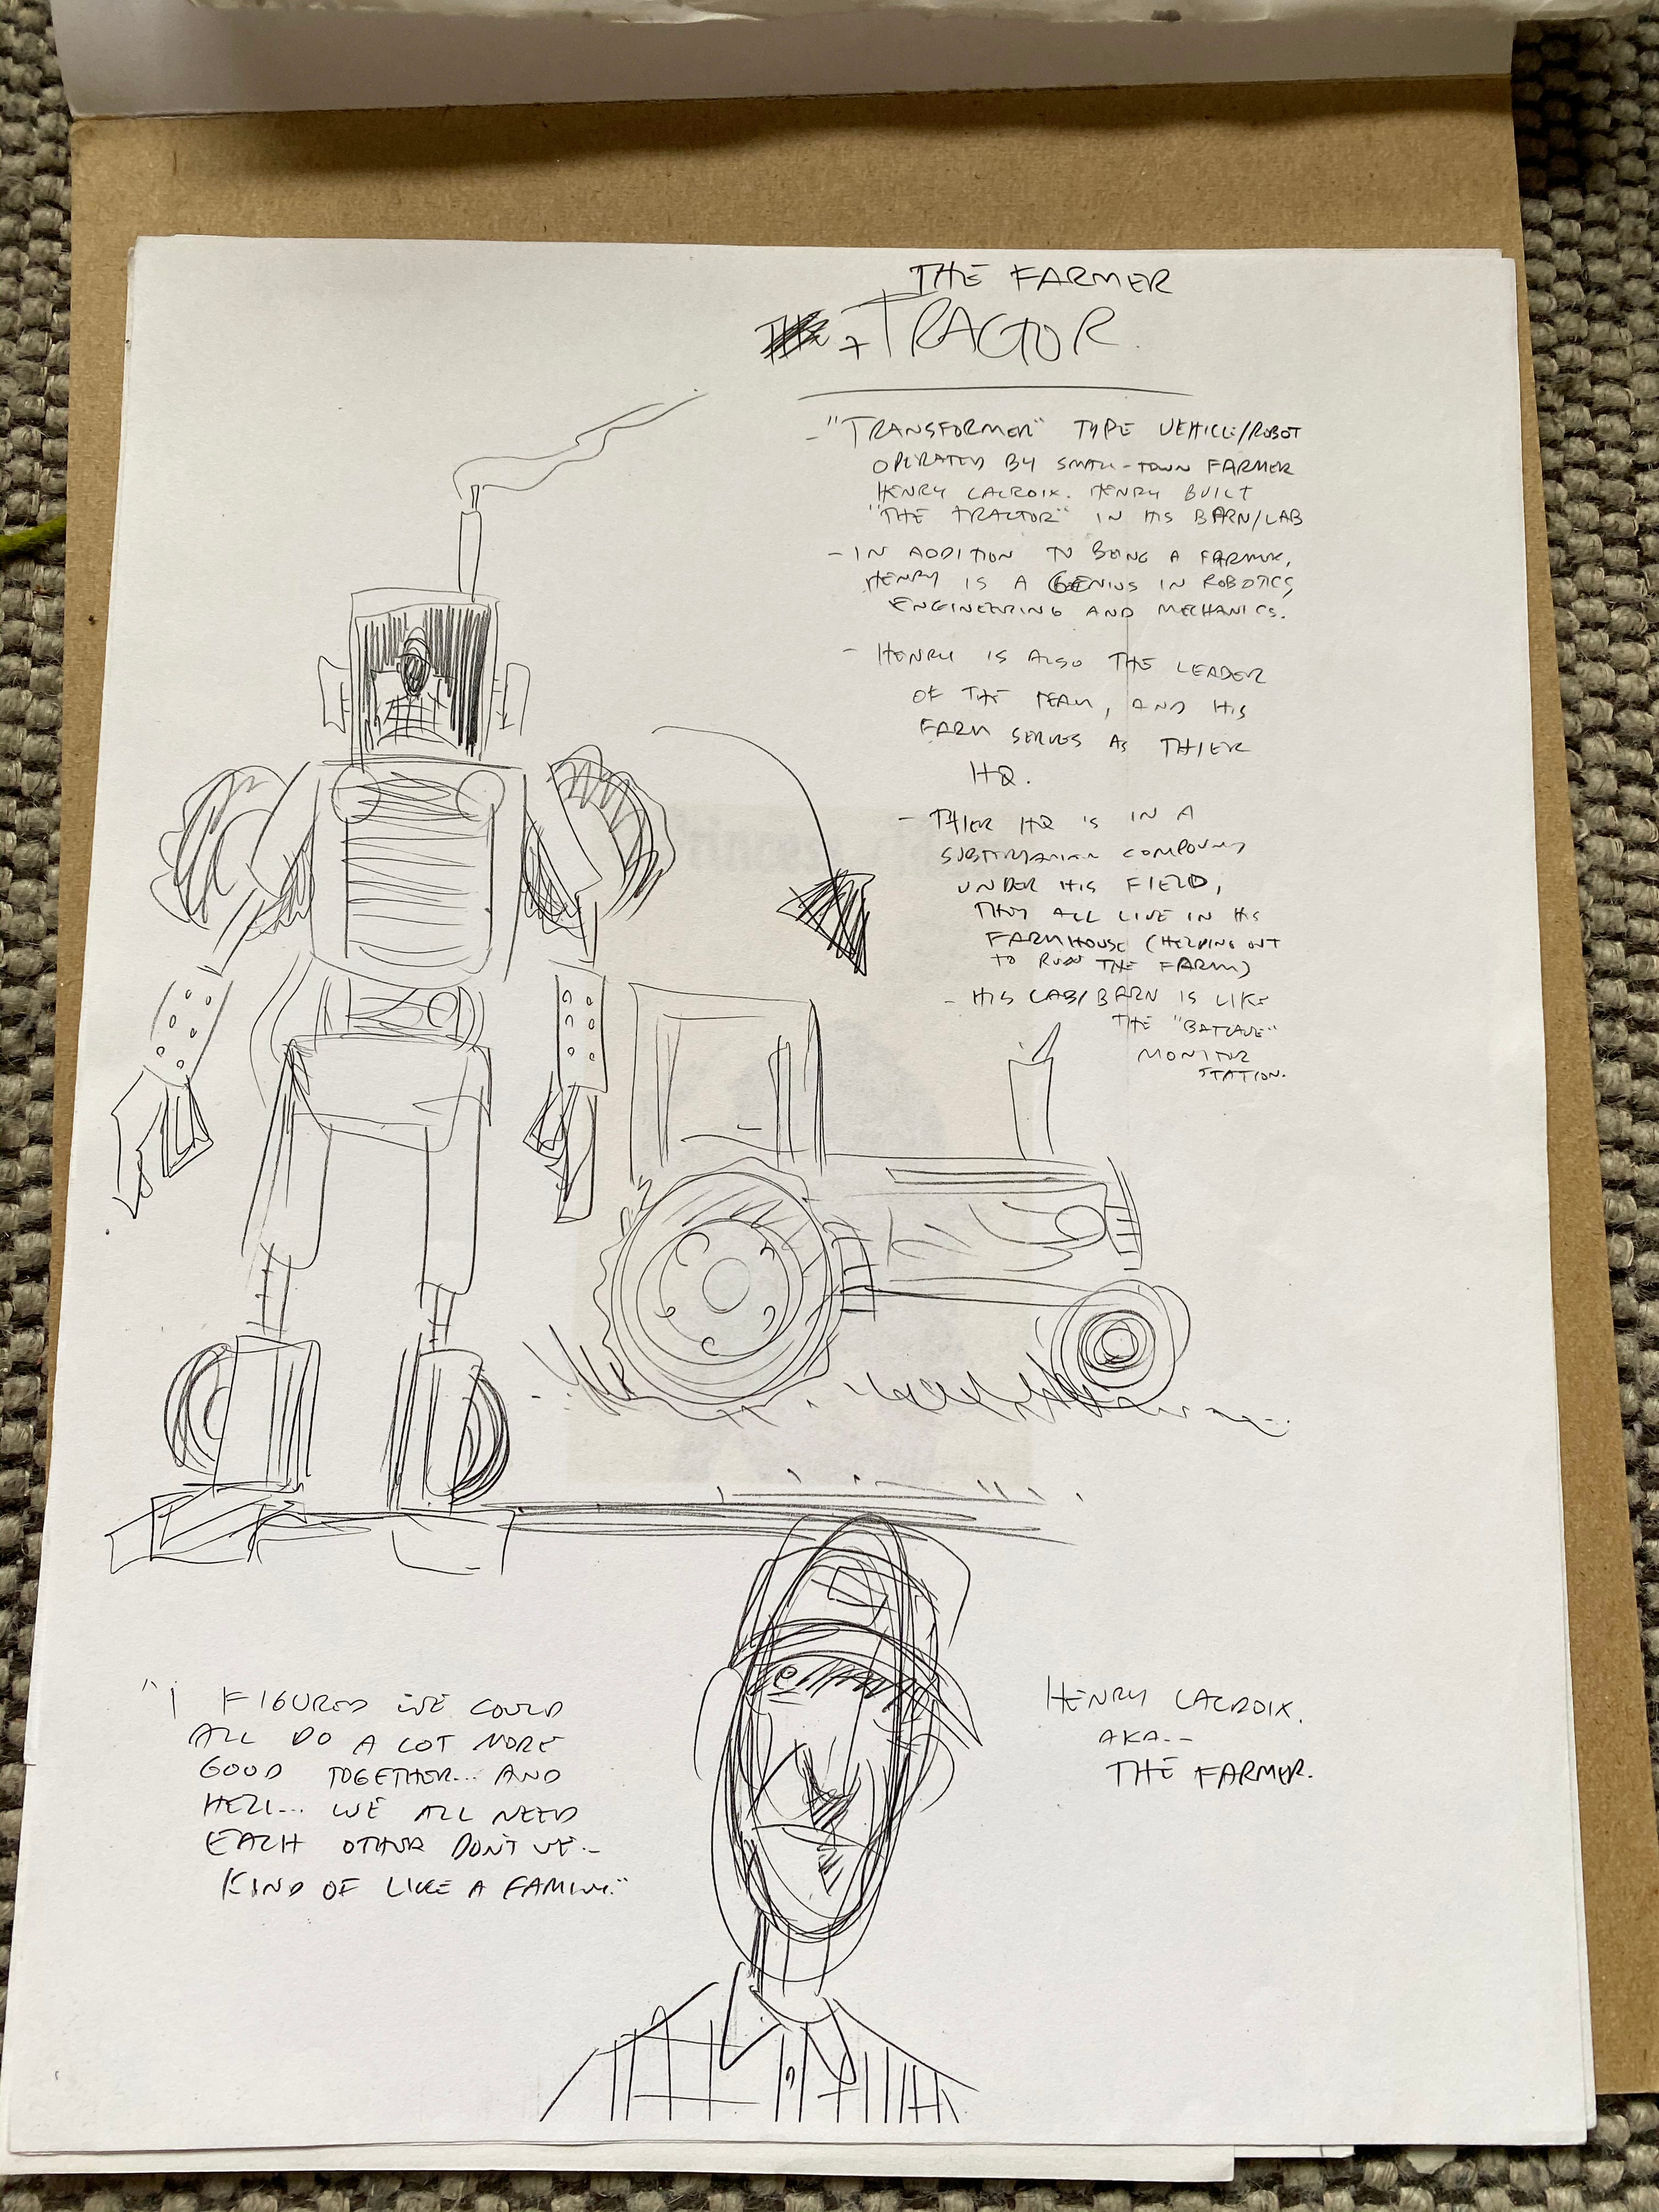 THE FARMER
THE + TRACTOR
- "TRANSFORMER" TYPE VEHICLE/ROBOT
OPERATED BY SMALL-TOWN FARMER
HENRY LACROIX. HENRY BUILT
"THE TRACTOR" IN HIS BARN/LAB
- IN ADDITION TO BEING A FARMER,
HENRY IS A GENIUS IN ROBOTICS,
ENGINEERING AND MECHANICS.
- HENRY IS ALSO THE LEADER
OF THE TEAM, AND HIS
FARM SERVES AS THIER
HQ.
- THIER HQ IS IN A
SUBTERRANIAN COMPOUND
UNDER HIS FIELD,
THEY ALL LIVE IN HIS
FARMHOUSE (HELPING OUT
TO RUN THE FARM)
- HIS LAB/BARN IS LIKE
THE "BATCAVE"
MONITOR
STATION.
"I FIGURED WE COULD
ALL DO A LOT MORE
GOOD TOGETHER... AND
HELL... WE ALL NEED
EACH OTHER DON'T WE--
KIND OF LIKE A FAMILY."
HENRY LACROIX.
AKA--
THE FARMER.